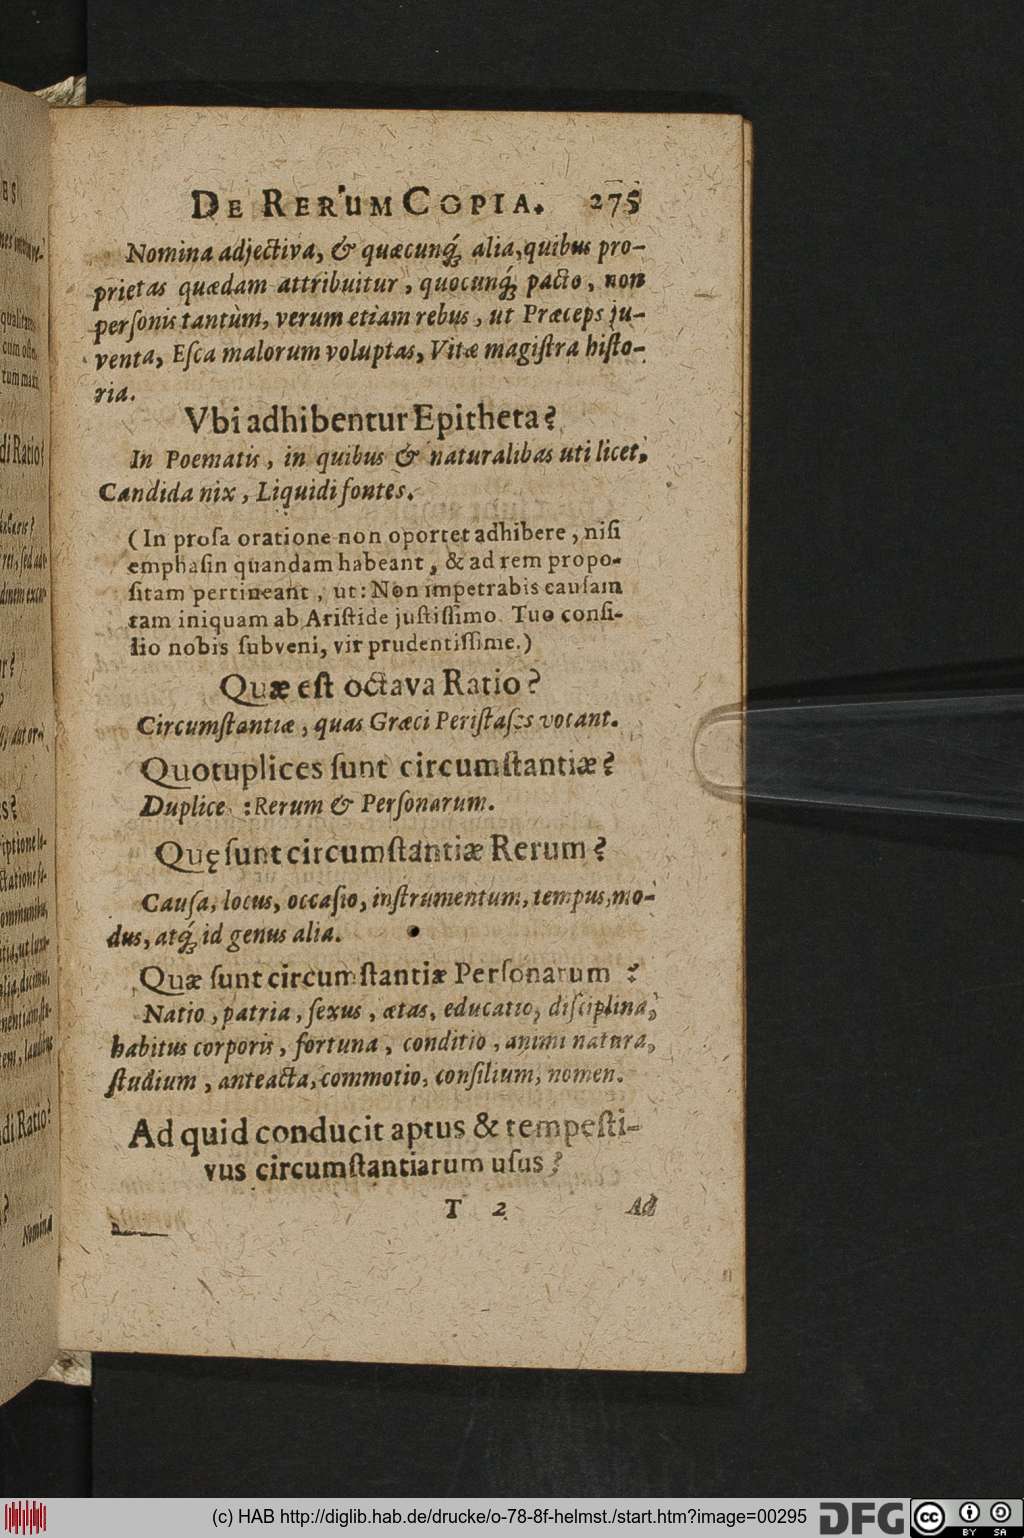 DE RERUM COPIA. 275
Nomina adjectiva, & quæcunq́; alia, quibus pro-
prietas quædam attribuitur, quocunq́; pacto, non
perſonis tantùm, verum etiam rebus, ut Præceps ju-
venta, Eſca malorum voluptas, Vitæ magiſtra hiſto-
ria.
Vbi adhibentur Epitheta?
In Poematis, in quibus & naturalibus uti licet,
Candida nix, Liquidi fontes.
(In proſa oratione non oportet adhibere, niſi
emphaſin quandam habeant, & ad rem propo-
ſitam pertineant, ut: Non impetrabis cauſam
tam iniquam ab Ariſtide juſtiſſimo. Tuo conſi-
lio nobis ſubveni, vir prudentiſſime.)
Quæ eſt octava Ratio?
Circumſtantiæ, quas Græci Periſtaſes vocant.
Quotuplices ſunt circumſtantiæ?
Duplice :Rerum & Perſonarum.
Quę ſunt circumſtantiæ Rerum?
Cauſa, locus, occaſio, inſtrumentum, tempus, mo-
dus, atq́; id genus alia.
Quæ ſunt circumſtantiæ Perſonarum ?
Natio, patria, ſexus, ætas, educatio, diſciplina,
habitus corporis, fortuna, conditio, animi natura,
ſtudium, anteacta, commotio, conſilium, nomen.
Ad quid conducit aptus & tempeſti-
vus circumſtantiarum uſus?
T 2 Ad
di Ratio?
di Ratio?
Nomina
(c) HAB http://diglib.hab.de/drucke/o-78-8f-helmst./start.htm?image=00295 DFG cc BY SA